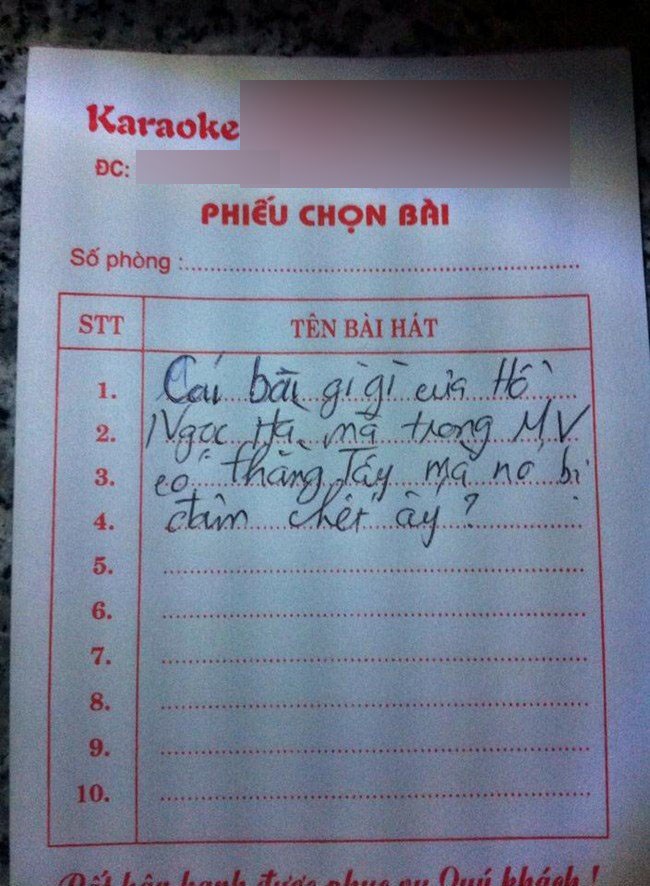 Karaoke
ĐC:
PHIẾU CHỌN BÀI
Số phòng :
STT TÊN BÀI HÁT
1. Cái bài gì gì của Hồ
2. Ngọc Hà mà trong MV
3. có thằng Tây mà nó bị
4. đâm chết ấy?
5.
6.
7.
8.
9.
10.
Rất hân hạnh được phục vụ Quý khách !